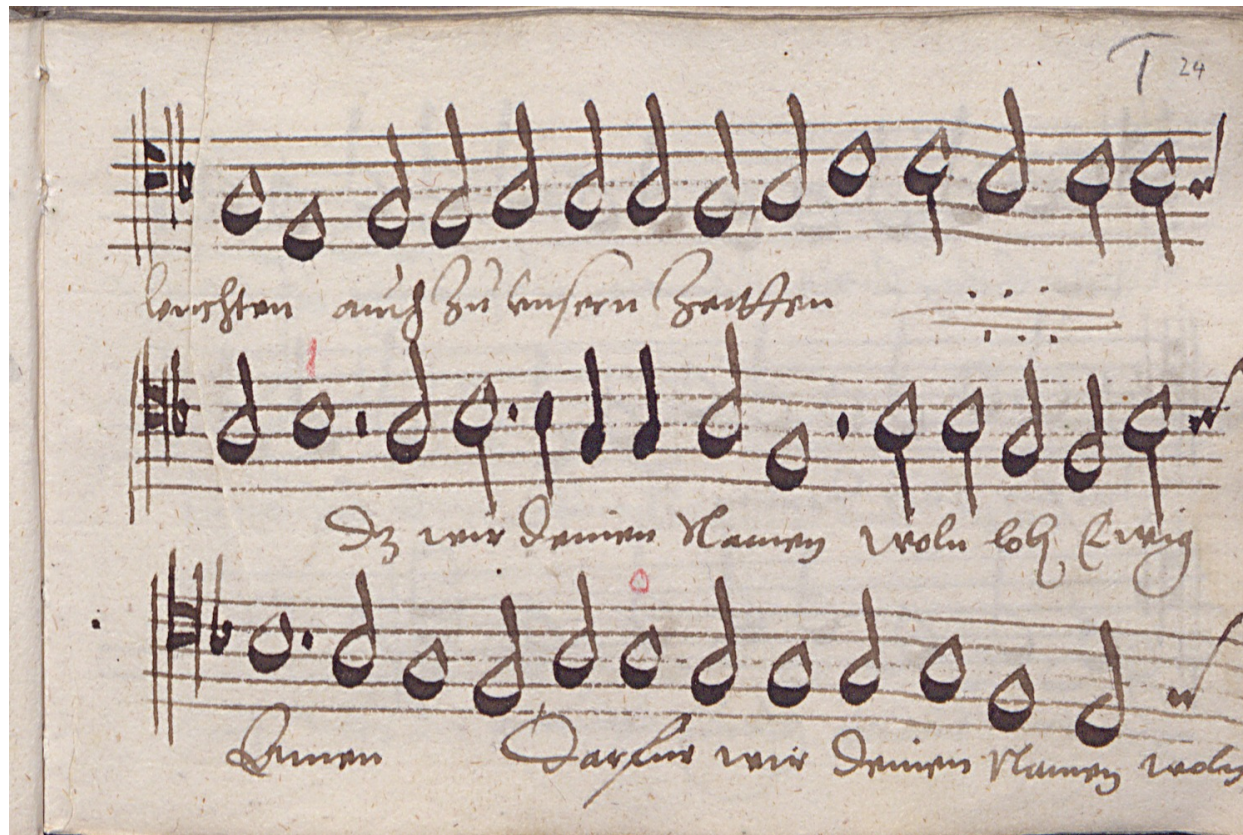 T 24
leuchten auch zu unsern Zeitten
dz wir deinen Namen woln lob Ewig
Amen Darfur wir deinen Namen woln